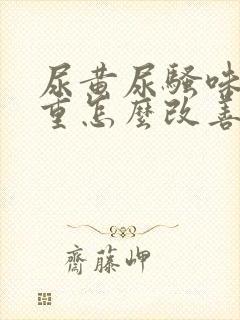 尿黄尿騷味
重怎麼改善
齋藤岬